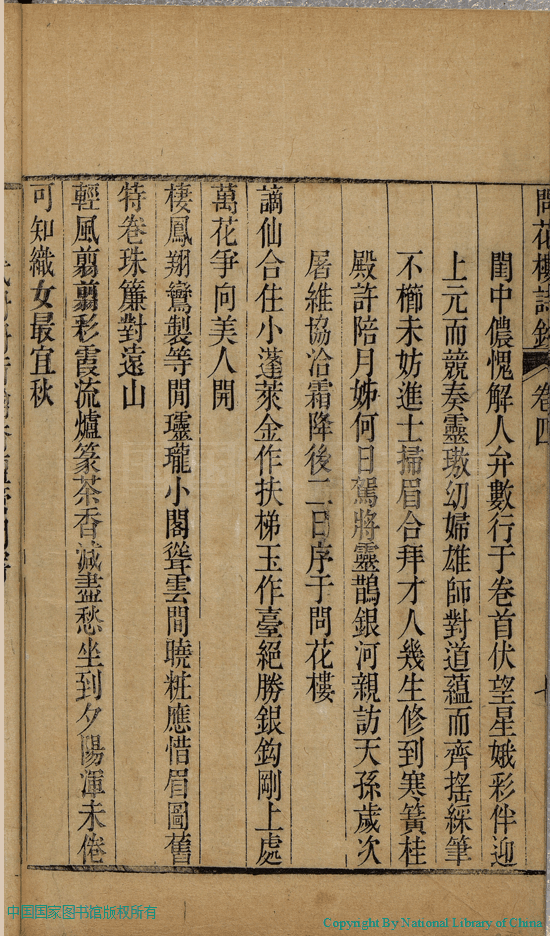 問花樓詩鈔 卷四
閨中儂愧解人弁數行于卷首伏望星娥彩伴迎
上元而競奏靈璈幼婦雄師對道蘊而齊搖綵筆
不櫛未妨進士掃眉合拜才人幾生修到寒簧桂
殿許陪月姊何日駕將靈鵲銀河親訪天孫歲次
屠維協洽霜降後二日序于問花樓
謫仙合住小蓬萊金作扶梯玉作臺絕勝銀鈎剛上處
萬花爭向美人開
棲鳳翔鸞製等閒瓏瓏小閣聳雲間曉粧應惜眉圖舊
特卷珠簾對遠山
輕風翦翦彩霞流爐篆茶香減盡愁坐到夕陽渾未倦
可知織女最宜秋
中国国家图书馆版权所有
Copyright By National Library of China